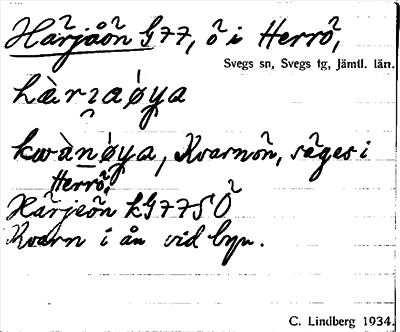 Härjåön G77, ö i Herrö,
Svegs sn, Svegs tg, Jämtl. län.
hὰrɿaøya
kwὰnøya, Kvarnön, säges i
Herrö.
Härjeön kG77SÖ
Kvarn i ån vid byn.
C. Lindberg 1934.